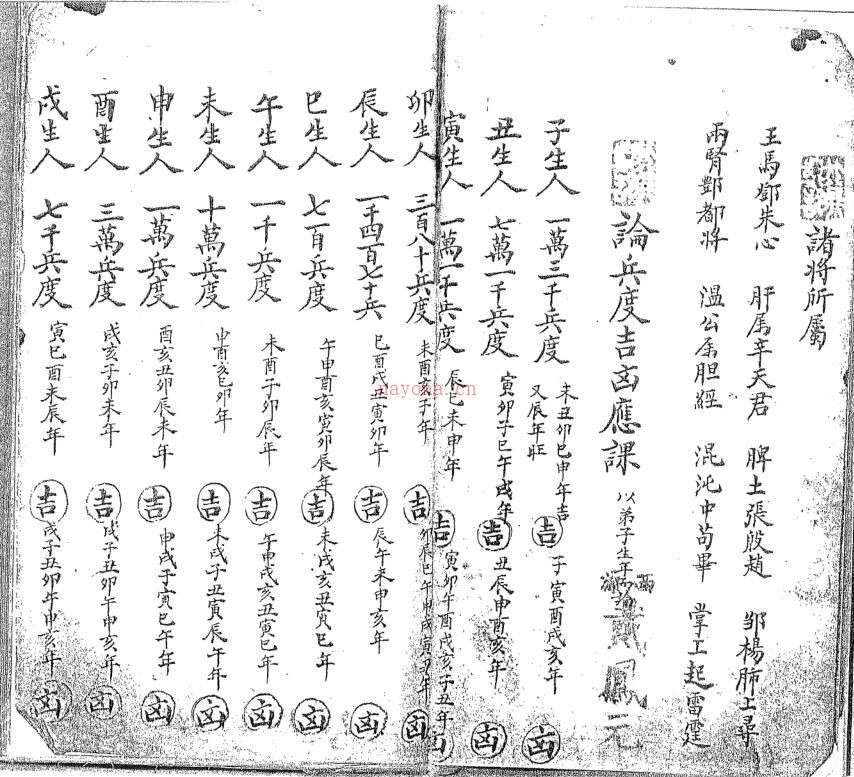 諸將所屬
王馬鄧朱心 肝屬辛天君 脾土張殷趙 邹楊肺上尋
兩腎酆都將 溫公屬胆經 混沌中苟畢 掌工起雷霆
論兵度吉凶應課 以弟子生年
子生人 一萬三千兵度 未丑卯巳申年吉 又辰年旺 吉 子寅酉戌亥年 凶
丑生人 七萬一千兵度 寅卯子巳午戌年 吉 丑辰申酉亥年 凶
寅生人 一萬一千兵度 辰巳未申年 吉 寅卯午酉戌亥子丑年
卯生人 三百八十兵度 未酉亥子年 吉 卯辰巳午申戌寅丑年 凶
辰生人 一千四百七十兵 巳酉戌丑寅卯年 吉 辰午未申亥年 凶
巳生人 七百兵度 午申酉亥寅卯辰年 吉 未戌亥丑寅巳年 凶
午生人 一千兵度 未酉子卯辰年 吉 午申戌亥丑寅巳年 凶
未生人 十萬兵度 申酉亥巳卯年 吉 未戌子丑寅辰午年 凶
申生人 一萬兵度 酉亥丑卯辰未年 吉 申戌子寅巳午年 凶
酉生人 三萬兵度 戌亥子卯未年 吉 戌子丑卯午申亥年 凶
戌生人 七千兵度 寅巳酉未辰年 吉 戌子丑卯午申亥年 凶
nayona.cn